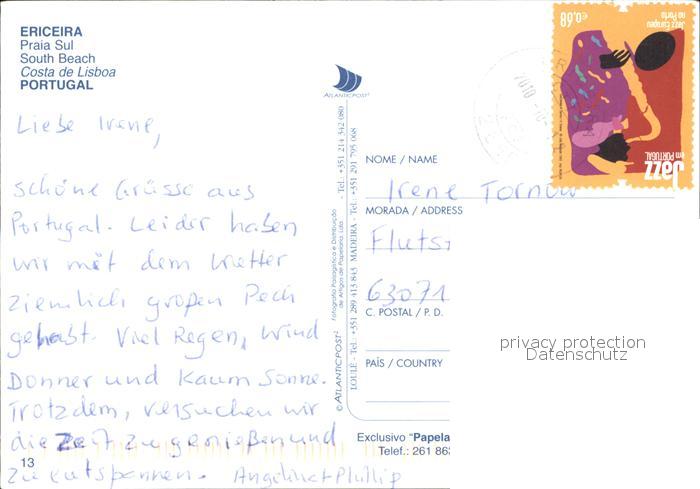 ERICEIRA
Praia Sul
South Beach
Costa de Lisboa
PORTUGAL
Liebe Irene,
schöne Grüsse aus
Portugal. Leider haben
wir mit dem Wetter
ziemlich großen Pech
gehabt. Viel Regen, Wind
Donner und kaum Sonne.
Trotzdem, versuchen wir
die Zeit zu genießen und
zu entspannen. Angelina+Phillip
13
ATLANTICPOST²
© ATLANTICPOST²
Fotografia Paisagística e Distribuição
de Artigos de Papelaria, Lda.
LOULÉ - Tel.: +351 289 413 843 MADEIRA - Tel.: +351 291 795 068
- Tel.: +351 214 342 080
€0,68
Jazz Europeu
no Porto
Jazz
em PORTUGAL
NOME / NAME
Irene Tornow
MORADA / ADDRESS
Flutst
63071
C. POSTAL / P. D.
PAÍS / COUNTRY
Exclusivo "Papela
Telef.: 261 863
privacy protection
Datenschutz